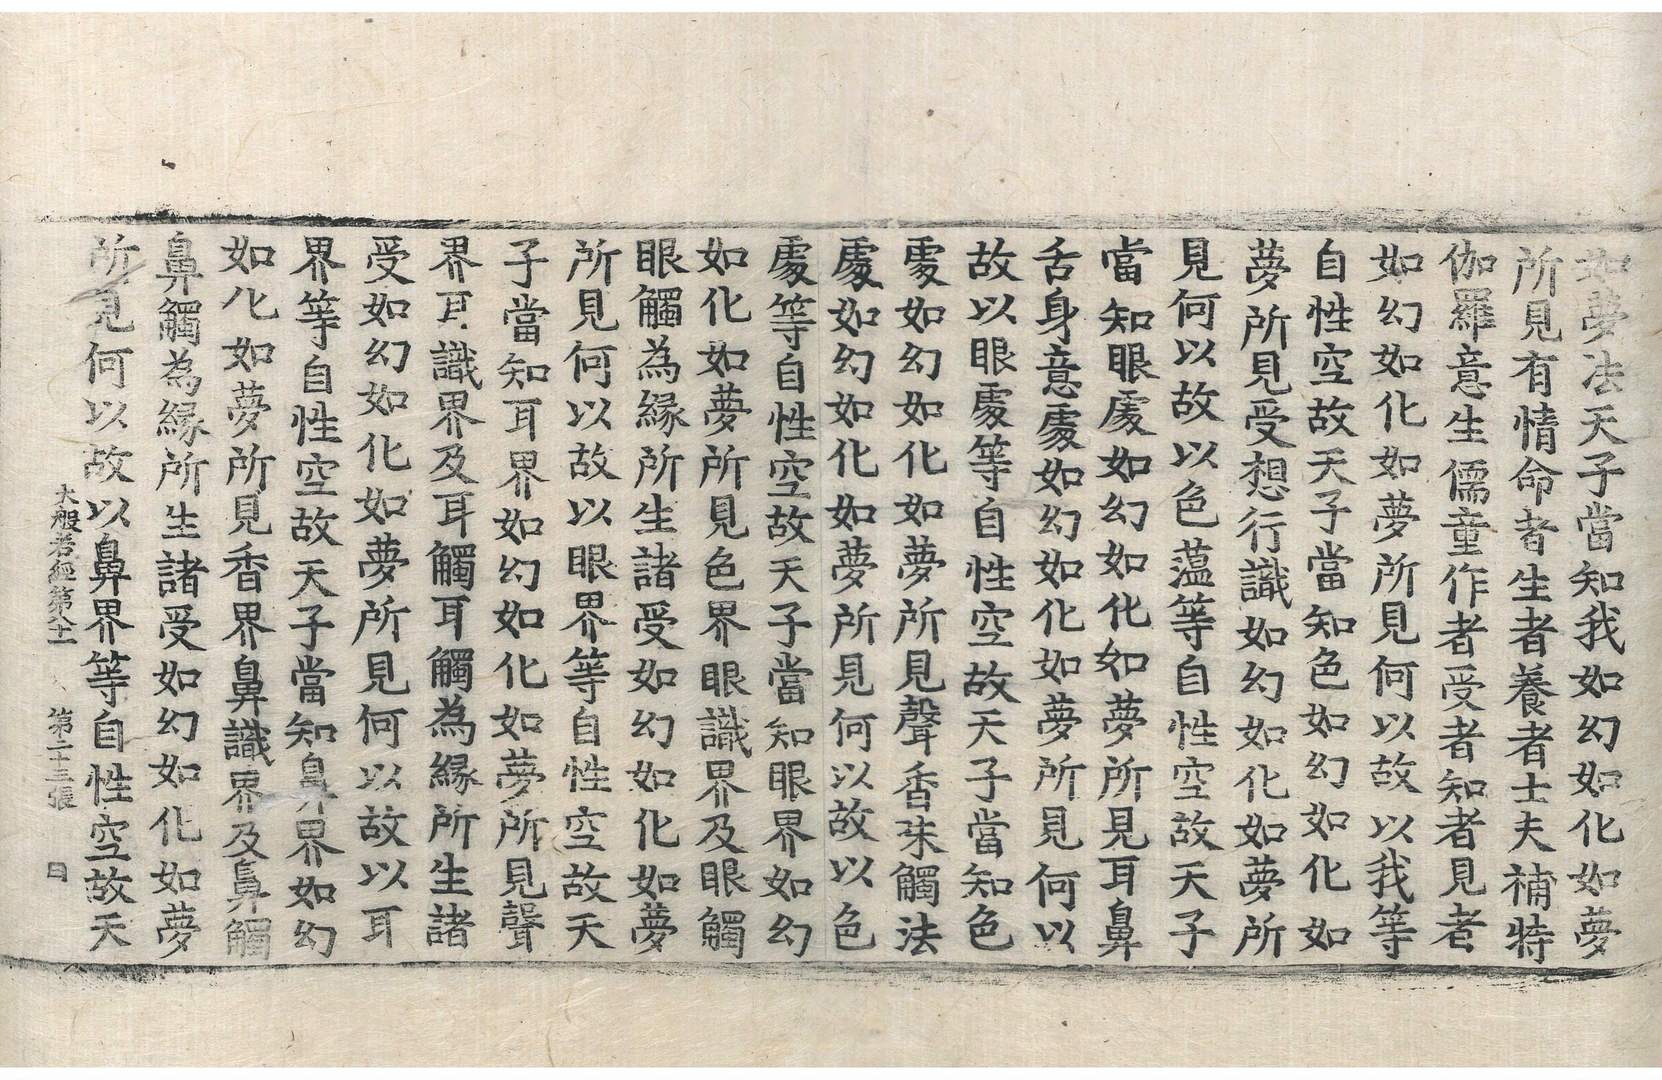 如夢法天子當知我如幻如化如夢
所見有情命者生者養者士夫補特
伽羅意生儒童作者受者知者見者
如幻如化如夢所見何以故以我等
自性空故天子當知色如幻如化如
夢所見受想行識如幻如化如夢所
見何以故以色蕰等自性空故天子
當知眼處如幻如化如夢所見耳鼻
舌身意處如幻如化如夢所見何以
故以眼處等自性空故天子當知色
處如幻如化如夢所見聲香味觸法
處如幻如化如夢所見何以故以色
處等自性空故天子當知眼界如幻
如化如夢所見色界眼識界及眼觸
眼觸為緣所生諸受如幻如化如夢
所見何以故以眼界等自性空故天
子當知耳界如幻如化如夢所見聲
界耳識界及耳觸耳觸為緣所生諸
受如幻如化如夢所見何以故以耳
界等自性空故天子當知鼻界如幻
如化如夢所見香界鼻識界及鼻觸
鼻觸為緣所生諸受如幻如化如夢
所見何以故以鼻界等自性空故天
大般若經第八十一 第二十三張